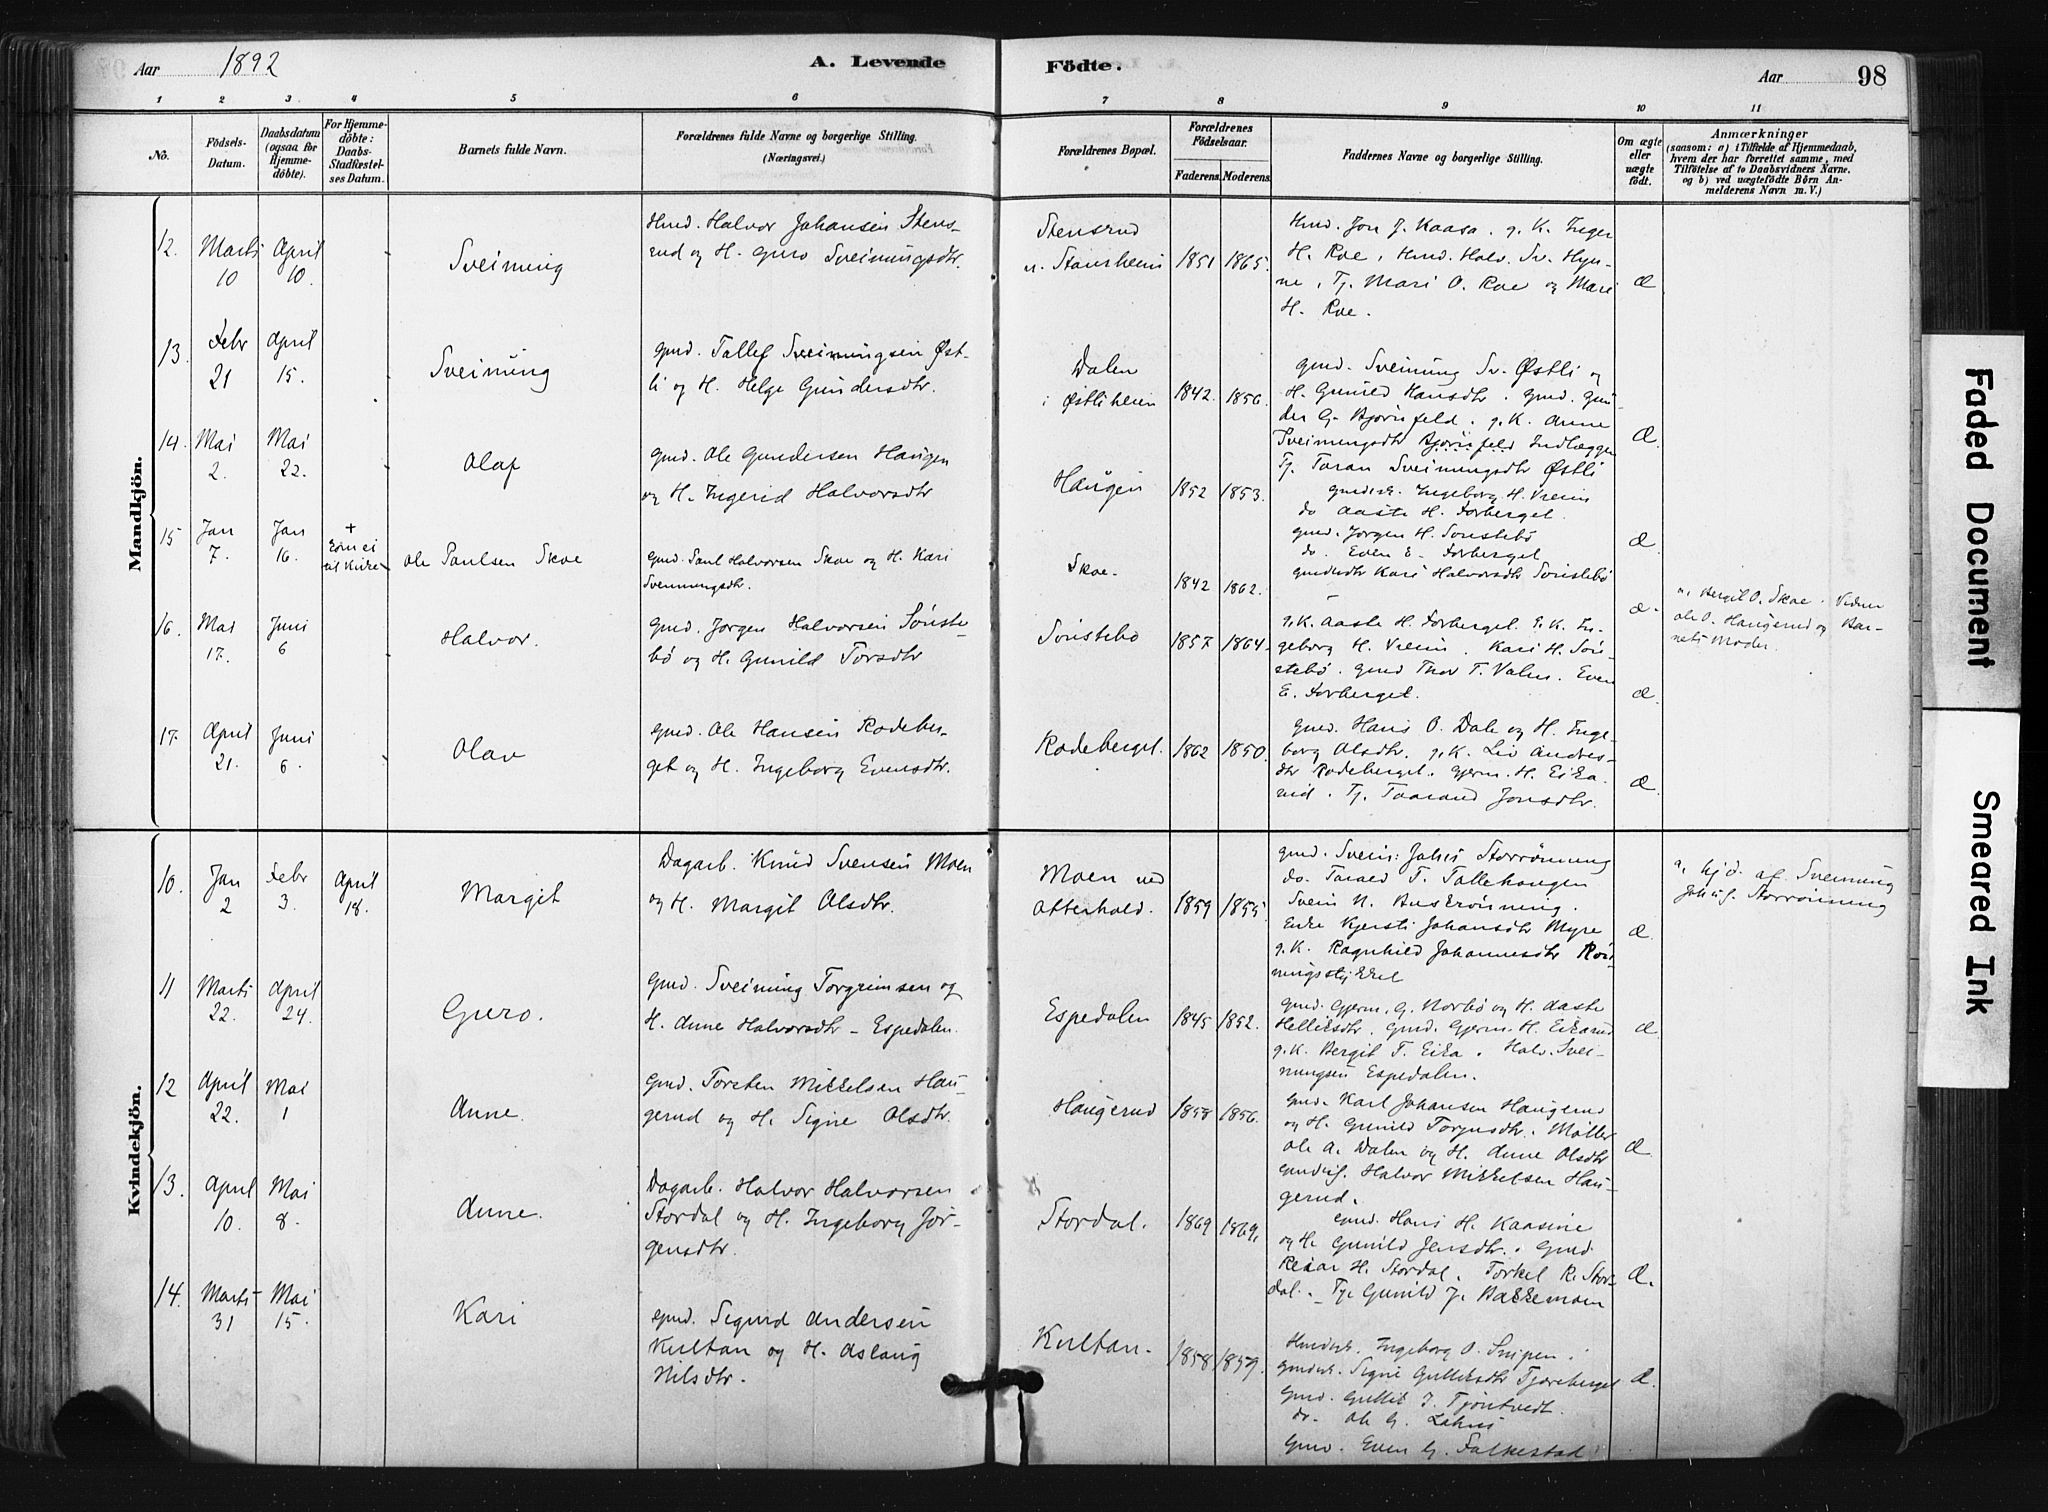 Aar 1892
A. Levende
Födte.
Aar
98
1 2 3 4 5 6 7 8 9 10 11
No.
Födsels-
Datum.
Daabsdatum
(ogsaa for
Hjemme-
döbte).
For Hjemme-
döbte:
Daabs-
Stadfæstel-
ses Datum.
Barnets fulde Navn.
Forældrenes fulde Navne og borgerlige Stilling.
(Næringsvei.)
Forældrenes Bopæl.
Forældrenes
Födselsaar.
Faderens. Moderens.
Faddernes Navne og borgerlige Stilling.
Om ægte
eller
uægte
födt.
Anmærkninger
(saasom: a) i Tilfælde af Hjemmedaab,
hvem der har forrettet samme, med
Tilföielse af to Daabsvidners Navne,
og b) ved uægtefödte Börn An-
melderens Navn m. V.)
Mandkjön.
12. Marts 10 April 10. Sveinung
Hmd. Halvor Johansen Stens-
rud og H. Guro Sveinungsdtr.
Stensrud
1851 1865.
Hmd. Jon J. Kaasa. g. K. Inger
H. Roe, Hmd. Halv. Sv. Hyn-
ne, Tj. Mari O. Roe og Mari
H. Roe.
Æ
13. Febr 21 April 15. Sveinung
Gmd. Tallef Sveinungsen Øst-
li og H. Helge Gundersdtr.
Dalen
i Østliheien
1842. 1856.
Gmd. Sveinung Sv. Østli og
H. Gunild Hansdtr. Gmd. Gun-
der G. Bjørnfeld. g. K. Anne
Sveinungsdtr Bjørnfeld Indlægger
Tj. Taran Sveinungsdtr Østli
Æ.
14. Mai 2. Mai 22. Olaf
Gmd. Ole Gundersen Haugen
og H. Ingerid Halvorsdtr
Haugen
1852 1853.
Gmdsk. Ingeborg H. Vreim
do Aaste H. Forberget.
Gmd. Jorgen H. Sønstebø
do. Even E. Forberget
Gmdsdtr Kari Halvorsdtr Sønstebø
Æ.
15 Jan 7. Jan 16. +
Kom ei
til Kirke
Ole Paulsen Skoe
Gmd. Paul Halvorsen Skoe og H. Kari
Svennungsdtr.
Skoe.
1842 1862.
Æ.
a, Bergit O. Skoe. Vidner
Ole O. Haugerud og Bar-
nets Moder.
16. Mai 17. Juni 6 Halvor.
Gmd. Jorgen Halvorsen Sønste-
bø og H. Gunild Torsdtr
Sønstebø
1857 1864.
g. K. Aaste H. Forberget. E. K. In-
geborg H. Vreim. Kari H. Søn-
stebø. Gmd Thor T. Valen. Even
E. Forberget.
Æ.
17. April 21. Juni 6. Olav
Gmd. Ole Hansen Rodeber-
get og H. Ingeborg Evensdtr.
Rodeberget.
1862 1850.
Gmd. Hans O. Dale og H. Inge-
borg Olsdtr. g. K. Liv Andres-
dtr Rodeberget. Gjerm. H. Eika-
rud. Tj. Taarand Jonsdtr.
Æ.
Kvindekjön.
10. Jan 2 Febr 3. April 18. Margit
Dagarb. Knud Svensen Moen
og H. Margit Olsdtr.
Moen ved
Atterhold.
1859 1855
Gmd. Svein: Johs Storrønning
do. Tarald T. Tallehaugen
Svein N. Buskrønning.
Enke Kjersti Johansdtr Myre
g. K. Ragnhild Johannesdtr Røn-
ningsstykket
Æ.
a, hjd. af Sveinung
Johs. Storrønning
11 Marts 22. April 24. Guro.
Gmd. Sveinung Torgrimsen og
H. Anne Halvorsdtr - Espedalen.
Espedalen
1845 1852.
Gmd. Gjerm. G. Norbø og H. Aaste
Helliksdtr. Gmd. Gjerm. H. Eikarud
g. K. Bergit T. Eika. Halv. Svei-
nungsen Espedalen.
Æ
12 April 22. Mai 1 Anne.
Gmd. Torsten Mikkelsen Hau-
gerud og H. Signe Olsdtr.
Haugerud
1858 1856.
Gmd. Karl Johansen Haugerud
og H. Gunild Torjusdtr. Møller
Ole A. Dalen og H. Anne Olsdtr
Gmdsf. Halvor Mikkelsen Hau-
gerud.
Æ.
13. April 10. Mai 8. Anne.
Dagarb. Halvor Halvorsen
Stordal og H. Ingeborg Jør-
gensdtr.
Stordal.
1869 1869.
Gmd. Hans H. Kaasine
og H. Gunild Jensdtr. Gmd
Reiar H. Stordal. Torkel R. Stor-
dal. Tj. Gunild J. Bakkemoen
Æ.
14. Marts 31 Mai 15. Kari
Gmd. Sigurd Andersen
Kultan og H. Aslaug
Nilsdtr.
Kultan.
1858 1859.
Hmdsk. Ingeborg O. Snipen.
Gmdsk. Signe Gulliksdtr Tjøreberget
Gmd. Gullik J. Tjøntvedt.
do. Ole G.
Gmd. Even G. Falkestad
Æ.
Faded Document
Smeared Ink